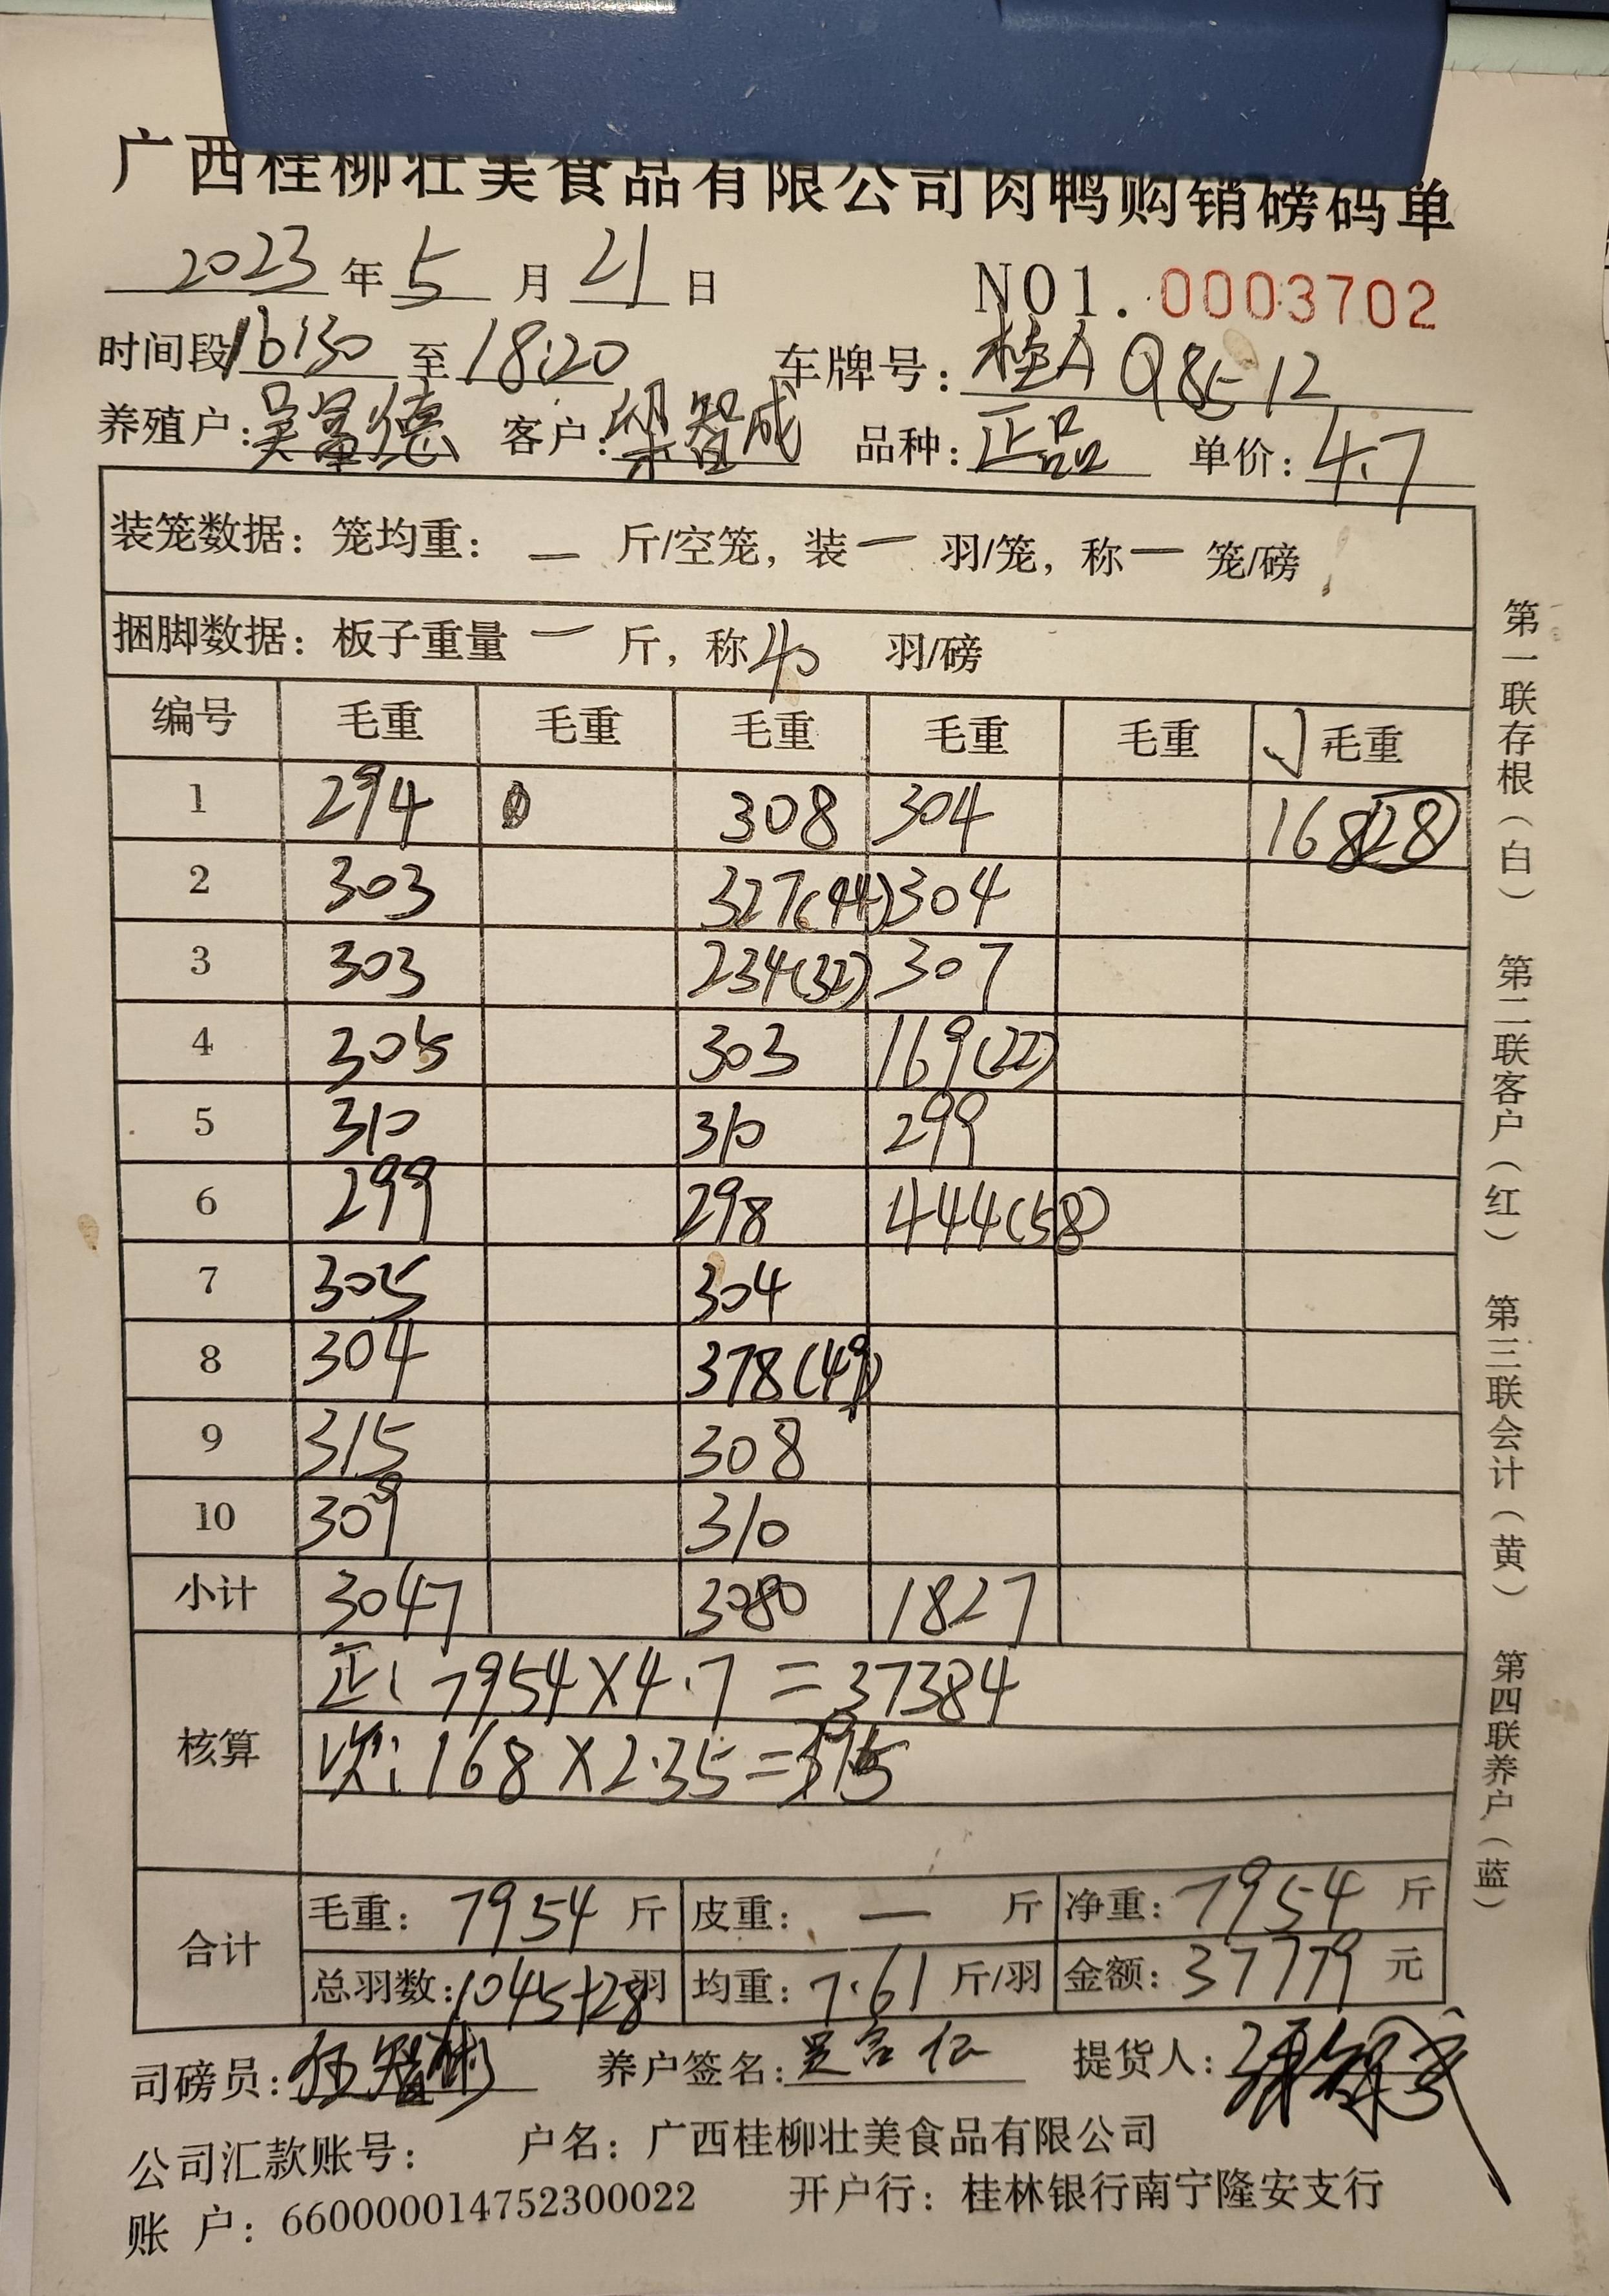 广西桂柳壮美食品有限公司肉鸭购销磅码单
2023年5月21日 NO1.0003702
时间段16:30至18:20 车牌号:桂A Q8512
养殖户:吴 德 客户:梁智成 品种:正品 单价:4.7
装笼数据:笼均重:一斤/空笼,装一羽/笼,称一笼/磅
捆脚数据:板子重量一斤,称40羽/磅
编号 毛重 毛重 毛重 毛重 毛重 毛重
1 294 308 304 168(28)
2 303 327(44) 304
3 303 234(32) 307
4 305 303 169(22)
5 310 310 299
6 299 298 444(58)
7 305 304
8 304 378(49)
9 315 308
10 309 310
小计 3047 3080 1827
核算 正:7954×4.7=37384
次:168×2.35=395
合计 毛重:7954斤 皮重:一斤 净重:7954斤
总羽数:1045+28羽 均重:7.61斤/羽 金额:37779元
司磅员: 智彬 养户签名: 提货人:
公司汇款账号: 户名:广西桂柳壮美食品有限公司
账 户:660000014752300022 开户行:桂林银行南宁隆安支行
第一联存根(白) 第二联客户(红) 第三联会计(黄) 第四联养户(蓝)